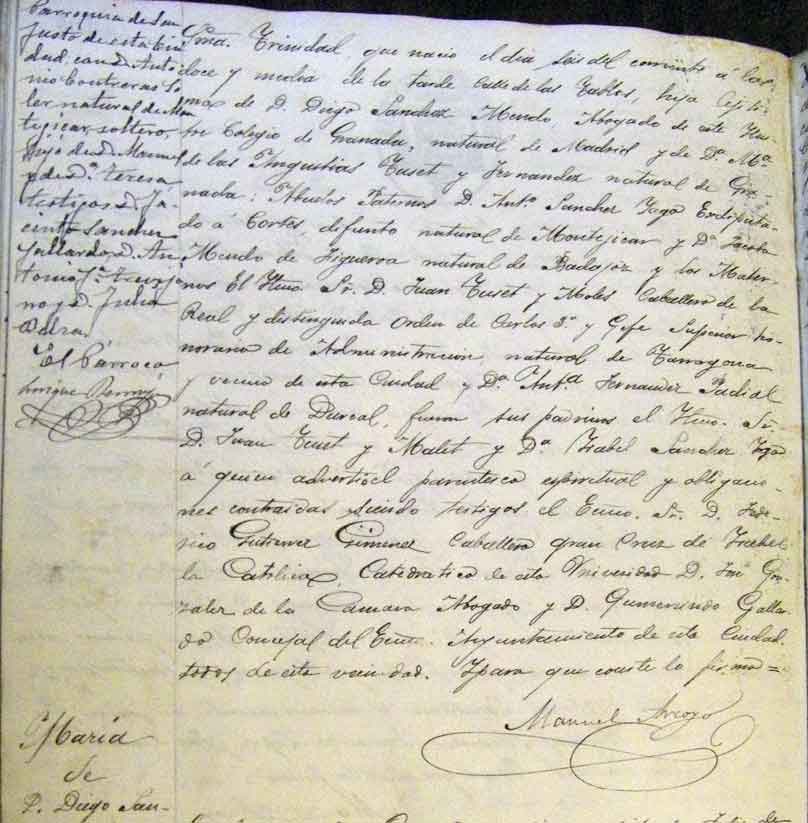 Parroquia de San
Justo de esta Ciu
dad, con D. Anto
nio Contreras So
ler natural de Mon
tejicar, soltero,
hijo de D. Manuel
y de D.ª Teresa
testigos D. Ja-
cinto Sanchez
Gallardo, y D. An
tonio
no y D. Julio
El Párroco
Enrique
Sma. Trinidad, que nacio el dia seis del corriente á las
doce y media de la tarde Calle de las Tablas, hija legiti-
ma de D. Diego Sanchez Mendo, Abogado de este Ilus-
tre Colegio de Granada, natural de Madrid y de D.ª M.ª
de las Angustias Tuset y Fernandez natural de Gra-
nada: Abuelos Paternos D. Ant.º Sanchez Yago Exdiputa-
do á Cortes, difunto natural de Montejicar y D.ª Jacoba
Mendo de Figueroa natural de Badajoz y los Mater-
nos El Iltmo Sr. D. Juan Tuset y Moles Caballero de la
Real y distinguida orden de Carlos 3.º y Gefe Superior ho-
norario de Administracion, natural de Tarragona
y vecino de esta Ciudad y D.ª Ant.ª Fernandez Padial
natural de Durcal, fueron sus padrinos el Iltmo. Sr.
D. Juan Tuset y Malet y D.ª Isabel Sanchez Yago
á quien advertí el parentesco espiritual y obligacio-
nes contraidas siendo testigos el Excmo. Sr. D. Fede-
rico Gutierrez Gimenez Caballero gran Cruz de Isabel
la Católica, Catedratico de esta Universidad D. José Gon
zalez de la Camara Abogado y D. Gumersindo Galla
do Concejal del Excmo. Ayuntamiento de esta Ciudad
todos de esta vecindad. Y para que conste lo firmo=
Manuel Arroyo
María
de
P. Diego San-